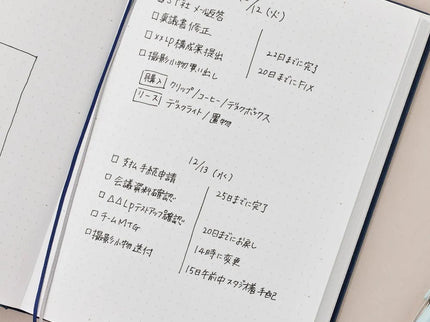 12/12 (火)
□ST社 メール返答
□稟議書修正
□××LP構成案提出
22日までに完了
□撮影小物買い出し
20日までにFIX
購入 クリップ/コーヒー/デスクボックス
リース デスクライト/置物
12/13 (水)
□支払手続申請
25日までに完了
□会議資料確認
□△△LPテストアップ確認
20日までにお戻し
□チームMTG
14時に変更
□撮影小物送付
15日午前中 スタジオ様手配